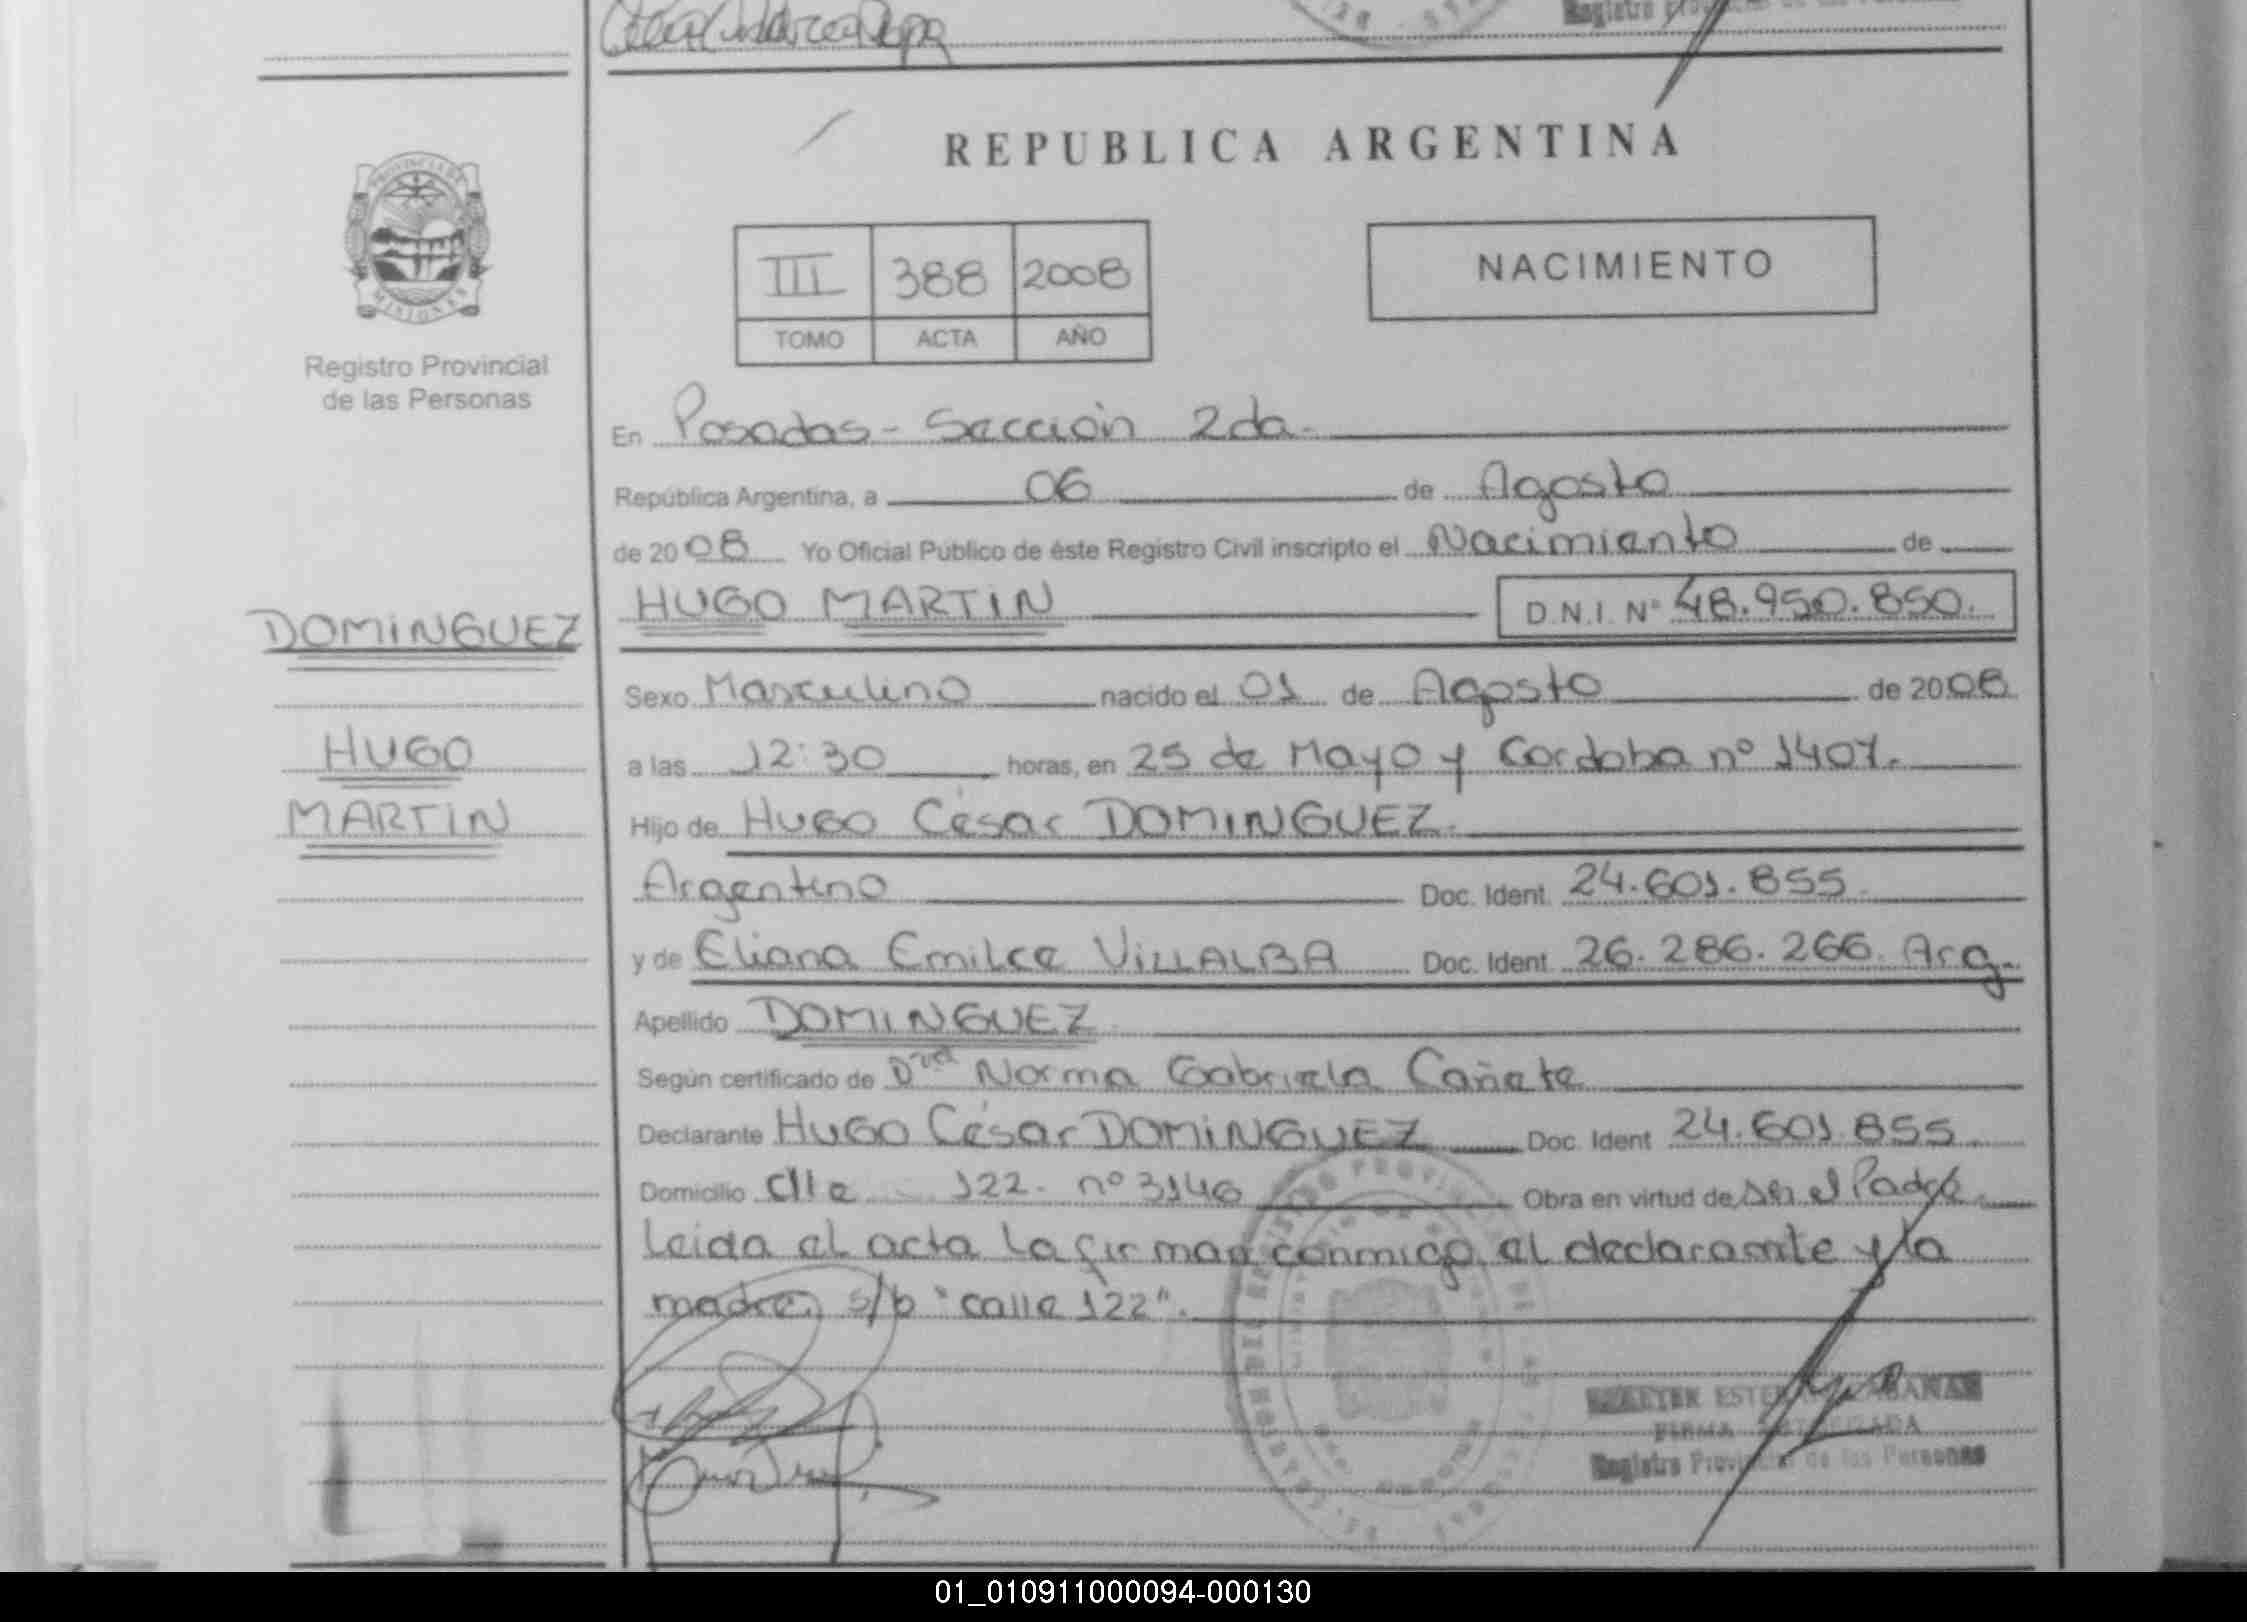 REPUBLICA ARGENTINA
PROVINCIA DE
MISIONES
Registro Provincial
de las Personas
III 388 2008
TOMO ACTA AÑO
NACIMIENTO
En Posadas - Sección 2da.
República Argentina, a 06 de Agosto
de 2008 Yo Oficial Público de éste Registro Civil inscripto el Nacimiento de
DOMINGUEZ
HUGO
MARTIN
HUGO MARTIN D.N.I. Nº 48.950.850.
Sexo Masculino nacido el 01 de Agosto de 2008
a las 12:30 horas, en 25 de Mayo y Cordoba nº 1407.
Hijo de HUGO César DOMINGUEZ.
Argentino Doc. Ident. 24.601.855.
y de Eliana Emilce VILLALBA Doc. Ident. 26.286.266. Arg.
Apellido DOMINGUEZ
Según certificado de Norma Gabriela Cañete
Declarante HUGO César DOMINGUEZ Doc. Ident 24.601.855.
Domicilio Clle 122. nº 3146 Obra en virtud de ser el Padre.
Leida el acta la firman conmigo el declarante y la
madre. s/b "calle 122".
FIRMA AUTORIZADA
Registro Provincial de las Personas
01_010911000094-000130